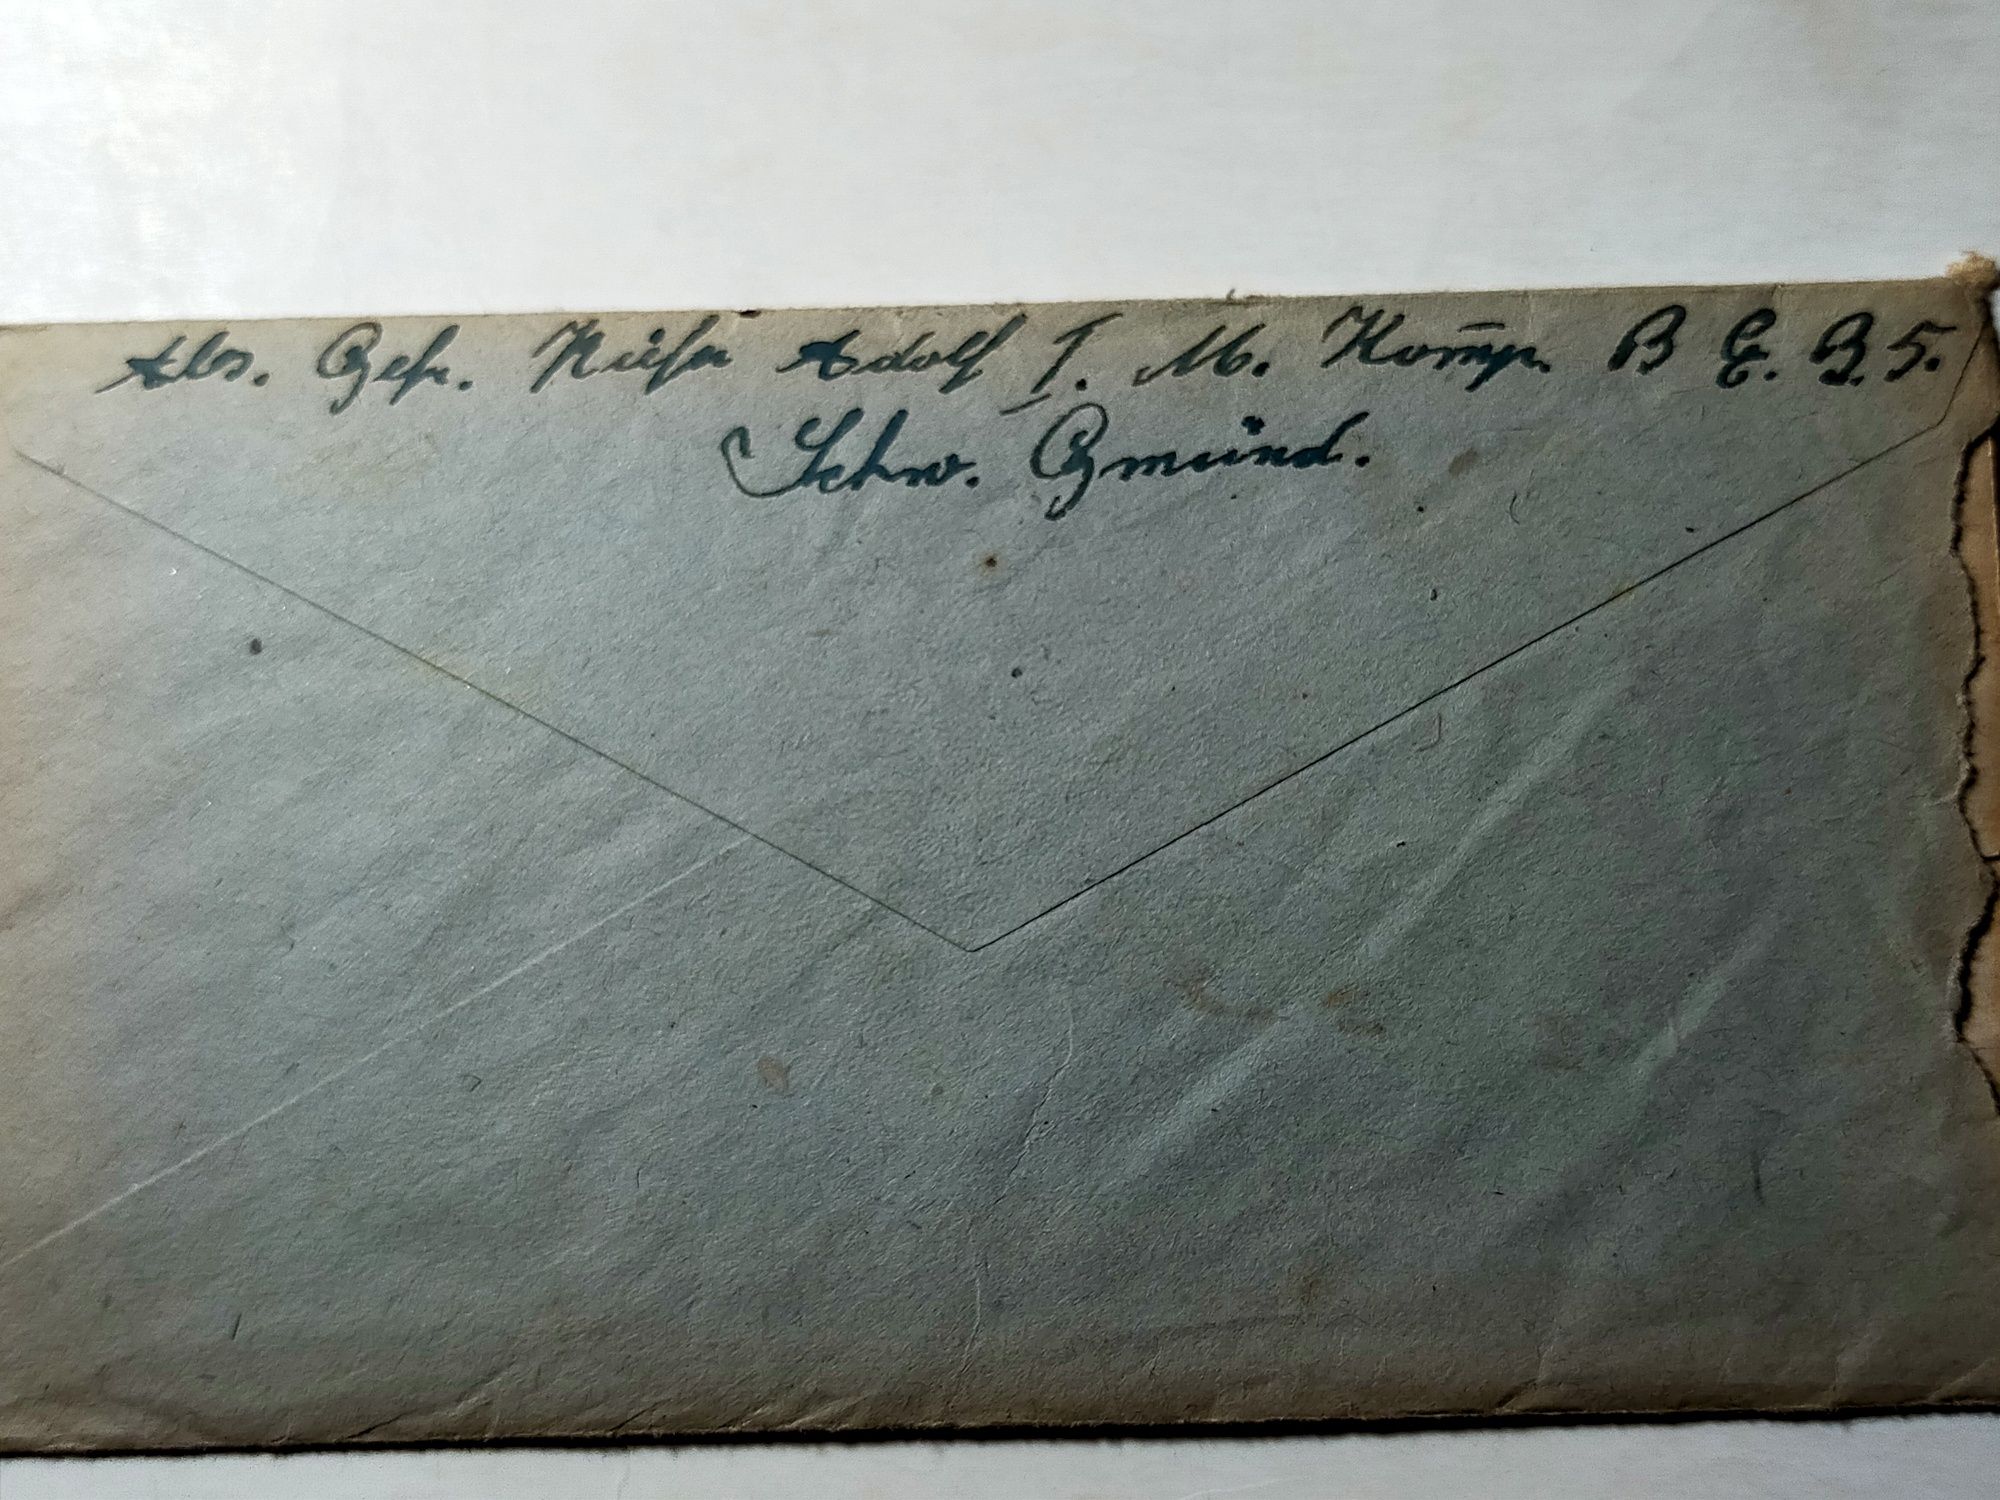 Abs. Gefr. Adolf I. M. Komp. B E. B. 5.
Schw. Gmünd.